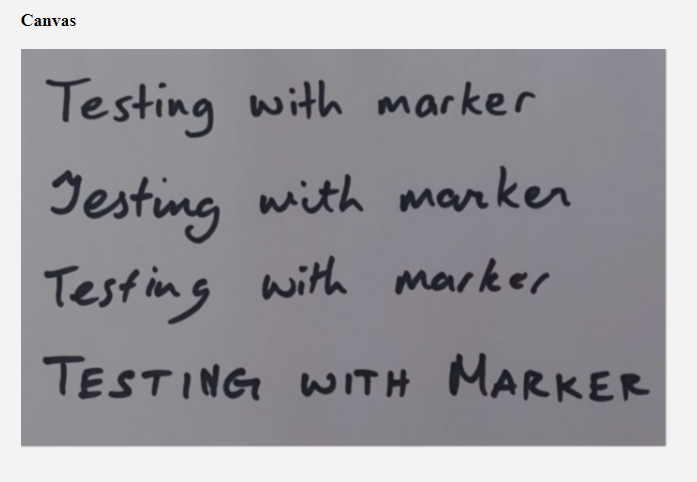 Canvas
Testing with marker
Testing with marker
Testing with marker
TESTING WITH MARKER